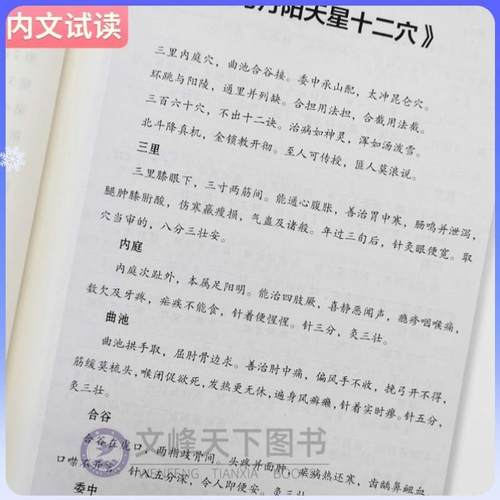 内文试读
丹阳天星十二穴》
三里内庭穴，曲池合谷接。委中承山配，太冲昆仑穴。
环跳与阳陵，通里并列缺。合担用法担，合截用法截。
三百六十穴，不出十二诀。治病如神灵，浑如汤泼雪。
北斗降真机，金锁教开彻。至人可传授，匪人莫浪说。
三里
三里膝眼下，三寸两筋间。能通心腹胀，善治胃中寒，肠鸣并泄泻，
腿肿膝胻酸，伤寒羸瘦损，气蛊及诸般。年过三旬后，针灸眼便宽。取
穴当审的，八分三壮安。
内庭
内庭次趾外，本属足阳明。能治四肢厥，喜静恶闻声，瘾疹咽喉痛，
数欠及牙疼，疟疾不能食，针着便惺惺。针三分，灸三壮。
曲池
曲池拱手取，屈肘骨边求。善治肘中痛，偏风手不收，挽弓开不得，
筋缓莫梳头，喉闭促欲死，发热更无休，遍身风癣癞，针着实时瘳。针五分，
灸三壮。
合谷
合谷在虎口，两指歧骨间。头疼并面肿，疟病热还寒，齿龋鼻衄血，
口噤不开言。针五分深，令人即便安。灸三壮
委中
文峰天下图书
WENFENG TIANXIA BOOKS